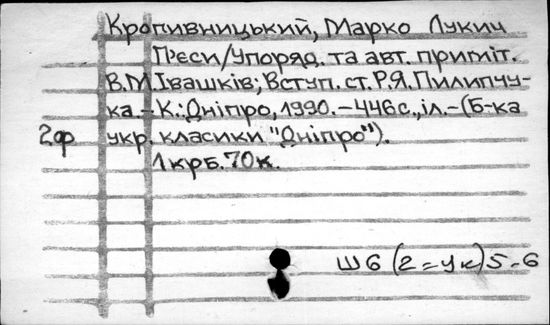 Кропивницький, Марко Лукич
П'єси/Упоряд. та авт. приміт.
В.М.Івашків; Вступ. ст. Р.Я.Пилипчу-
ка.-К.: Дніпро, 1990.-446с., іл.-(Б-ка
2ф укр. класики "Дніпро").
1крб.70к.
Ш6 (2=Ук)5-6